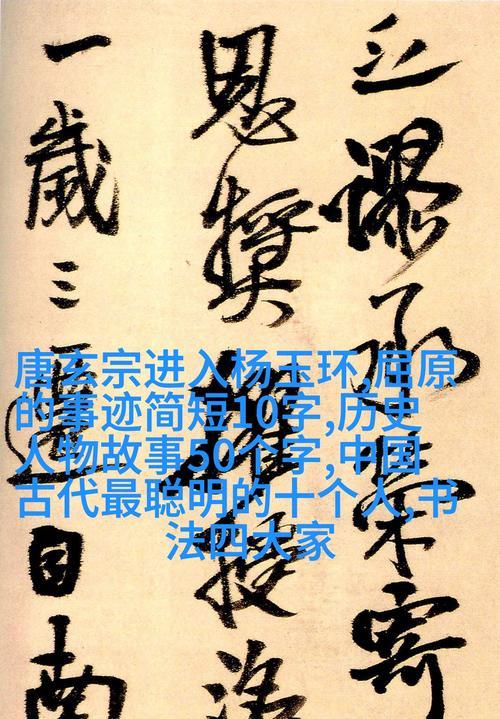 之謬承榮寄
恩獎擢授
一歲三遷自南
唐玄宗进入杨玉环,屈原
的事迹简短10字,历史
人物故事50个字,中国
古代最聪明的十个人,书
法四大家